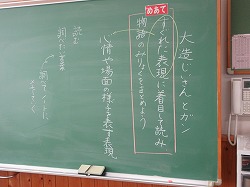 大造じいさんとガン
めあて
すぐれた表現に着目して読み
物語のみりょくをまとめよう
心情や場面の様子を表す表現
読む
調べたい言葉